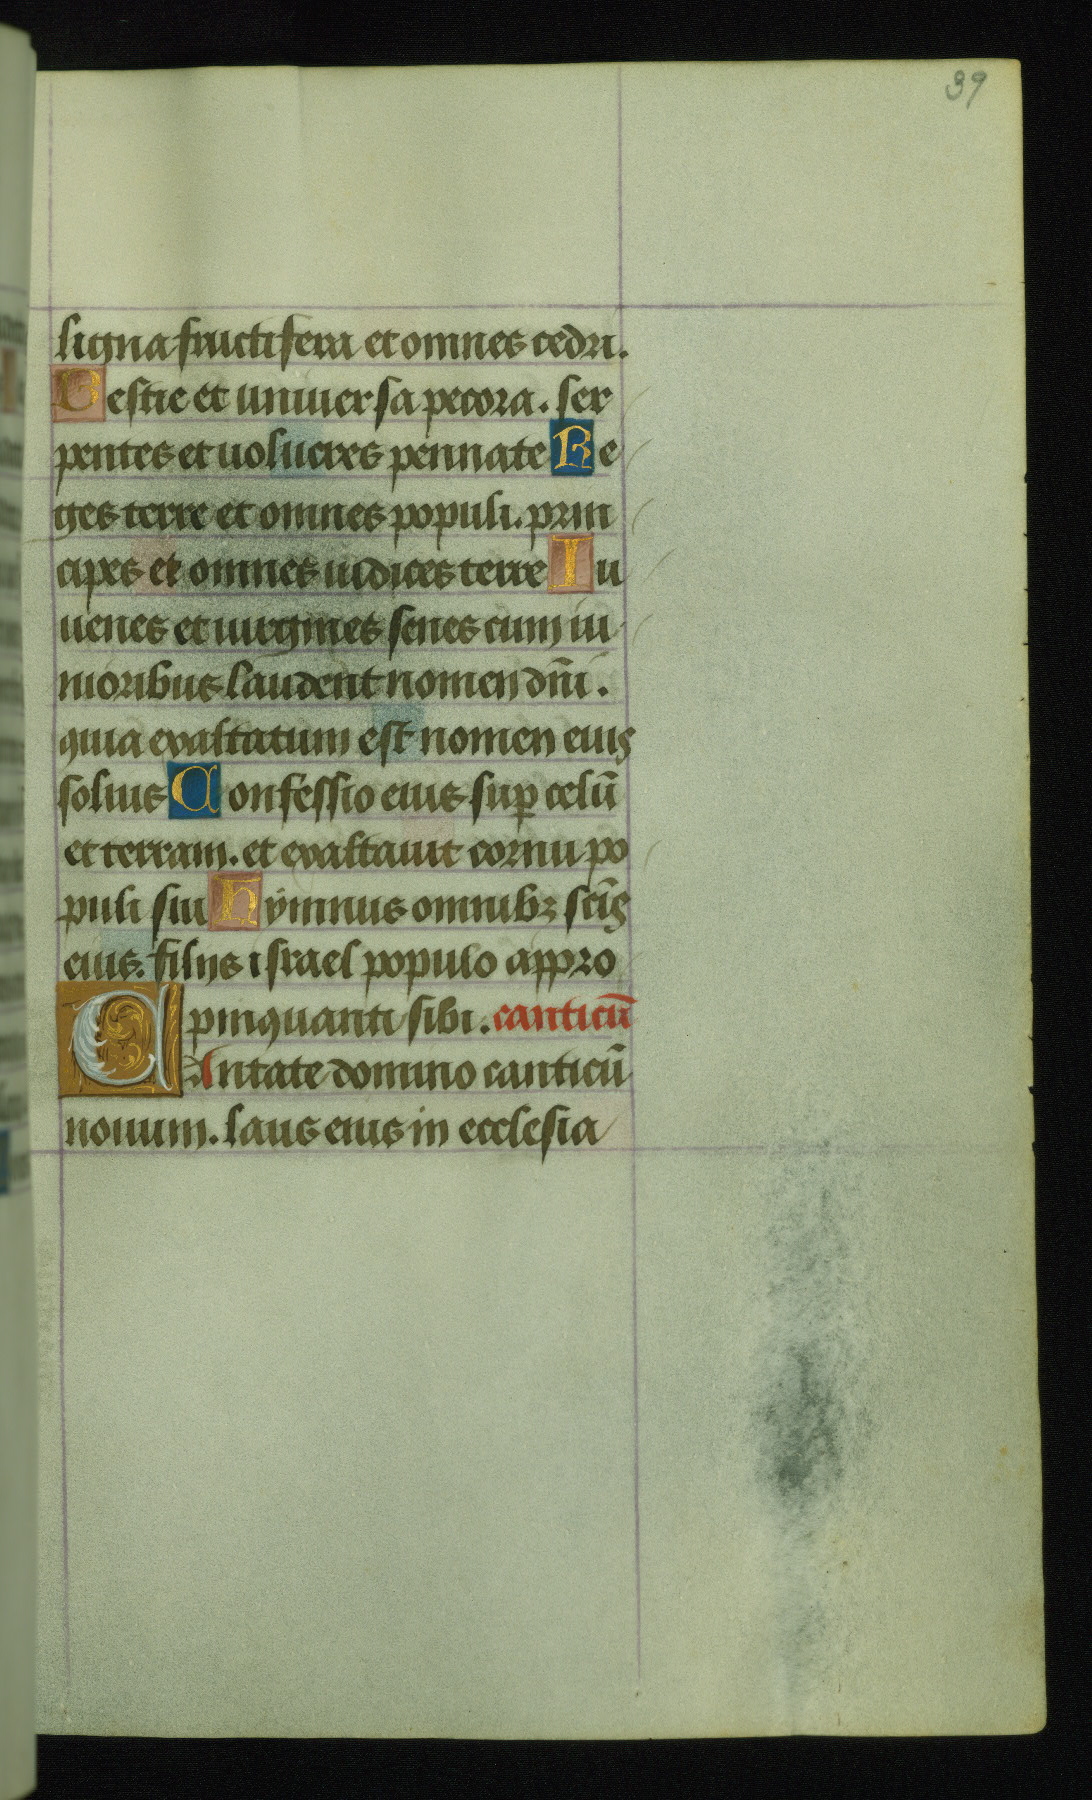 39
ligna fructifera et omnes cedri.
Bestie et uniuersa pecora. ser
pentes et uolucres pennate Re
ges terre et omnes populi. prin
cipes et omnes iudices terre Iu
uenes et uirgines senes cum iu
nioribus laudent nomen dñi.
quia exaltatum est nomen eius
solius Confessio eius sup celū
et terram. et exaltauit cornu po
puli sui Hymnus omnibꝫ scīs
eius. filijs israel populo appro
pinquanti sibi. canticū
Cantate domino canticū
nouum. laus eius in ecclesia